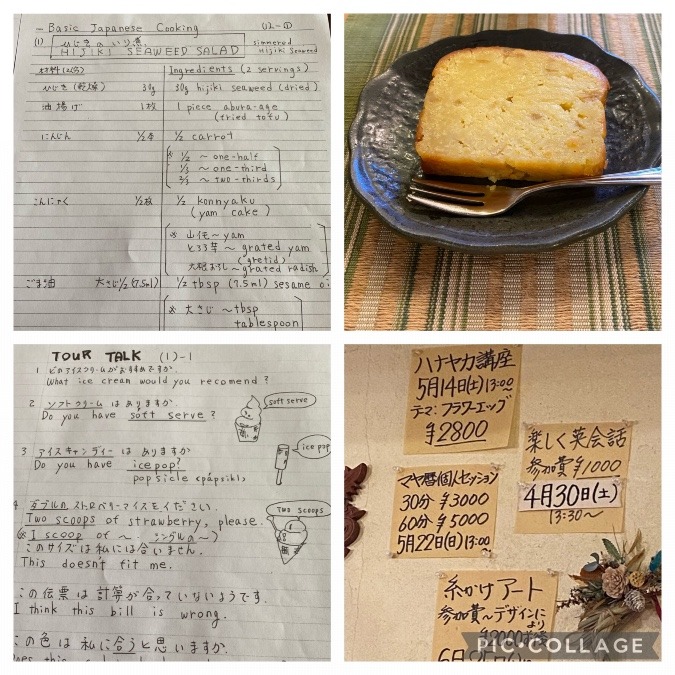 Basic Japanese Cooking
(1) ひじきのいり煮 simmered
HIJIKI SEAWEED SALAD Hijiki Seaweed
材料(2人分) Ingredients (2 servings)
ひじき(乾燥) 30g 30g hijiki seaweed (dried)
油揚げ 1枚 1 piece abura-age
(fried tofu)
にんじん 1/2本 1/2 carrot
※ 1/2 〜 one-half
1/3 〜 one-third
2/3 〜 two-thirds
こんにゃく 1/2枚 1/2 konnyaku
(yam cake)
※ 山芋〜yam
とろろ芋〜grated yam
(gretid)
大根おろし〜grated radish
ごま油 大さじ1/2(7.5ml) 1/2 tbsp (7.5ml) sesame oi
※ 大さじ 〜tbsp
tablespoon
TOUR TALK (1)-1
1 どのアイスクリームがおすすめですか.
What ice cream would you recomend?
2 ソフトクリーム は ありますか
Do you have soft serve?
soft serve
3 アイスキャンディー は ありますか
Do you have ice pop?
popsicle (pápsikl)
ice pop
4 ダブルの ストロベリーアイスを ください.
Two scoops of strawberry, please.
(※ 1 scoop of 〜. シングルの〜)
Two scoops
このサイズは私には合いません.
This doesn't fit me.
この伝票は 計算が 合っていないようです.
I think this bill is wrong.
この色は 私に合うと思いますか.
Does this
ハナヤカ講座
5月14日(土)13:00
テーマ:フラワーエッグ
¥2800
楽しく英会話
参加費¥1000
4月30日(土)
13:30〜
マヤ暦個人セッション
30分 ¥3000
60分 ¥5000
5月22日(日)13:00〜
糸かけアート
参加費〜デザインに
より
PIC•COLLAGE